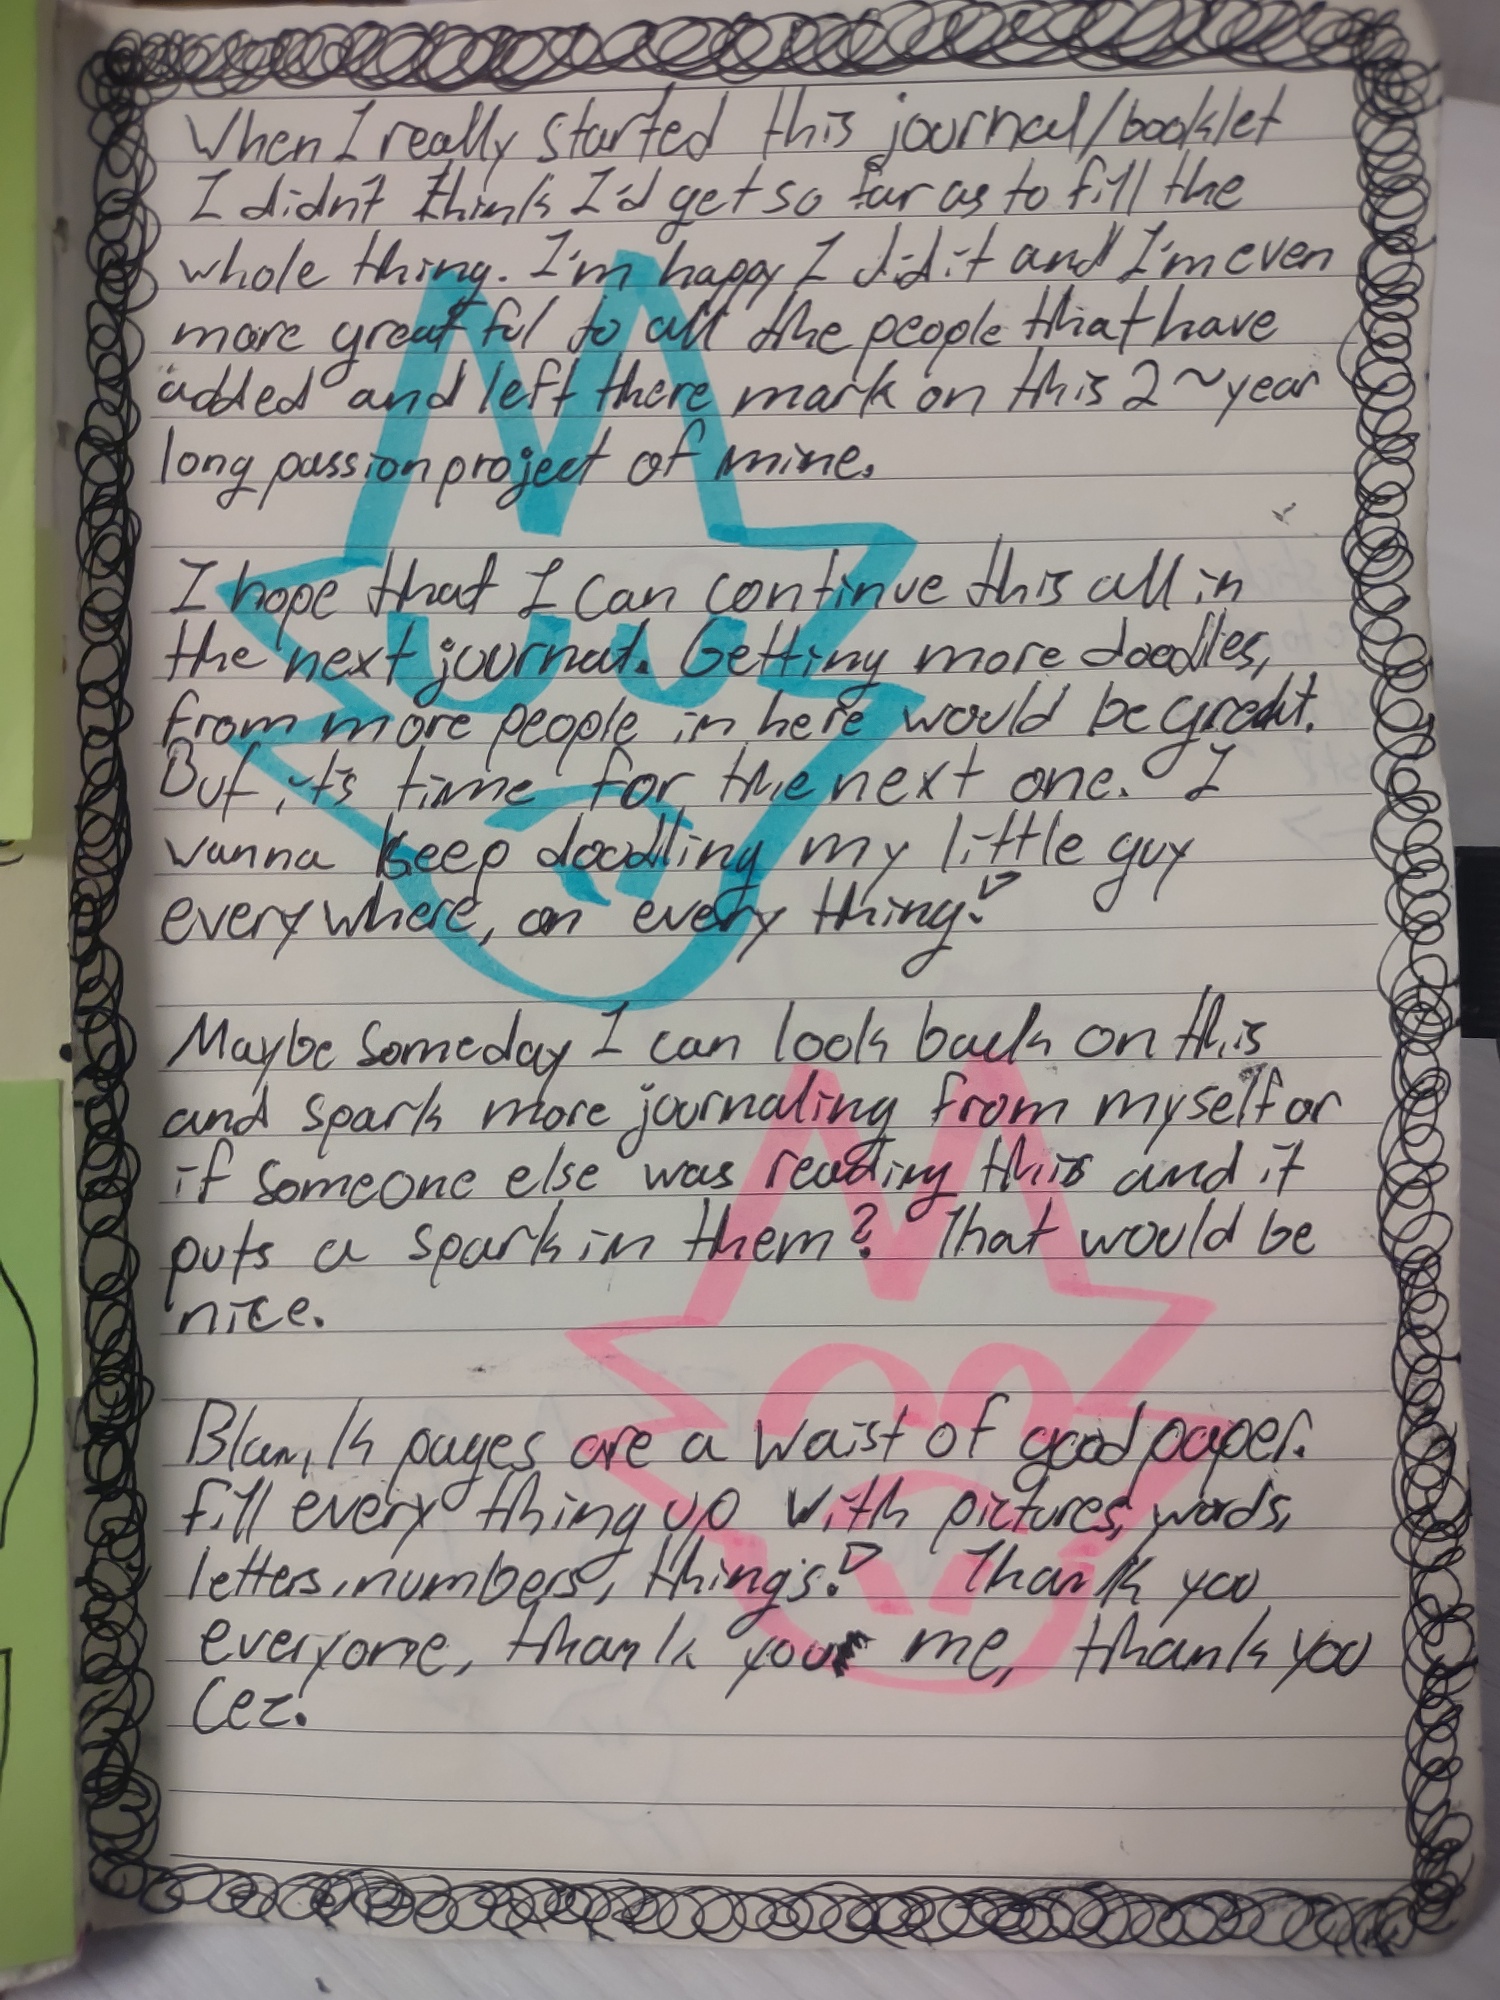 When I really started this journal/booklet
I didn't think I'd get so far as to fill the
whole thing. I'm happy I did it and I'm even
more greatful to all the people that have
added and left there mark on this 2~year
long passion project of mine.
I hope that I can continue this all in
the next journal. Getting more doodles,
from more people in here would be great.
But, it's time for the next one. I
wanna keep doodling my little guy
everywhere, on every thing!
Maybe someday I can look back on this
and spark more journaling from myself or
if someone else was reading this and it
puts a spark in them? That would be
nice.
Blank pages are a waist of good paper.
Fill every thing up with pictures, words,
letters, numbers, things! Thank you
everyone, thank you me, thank you
Cez.